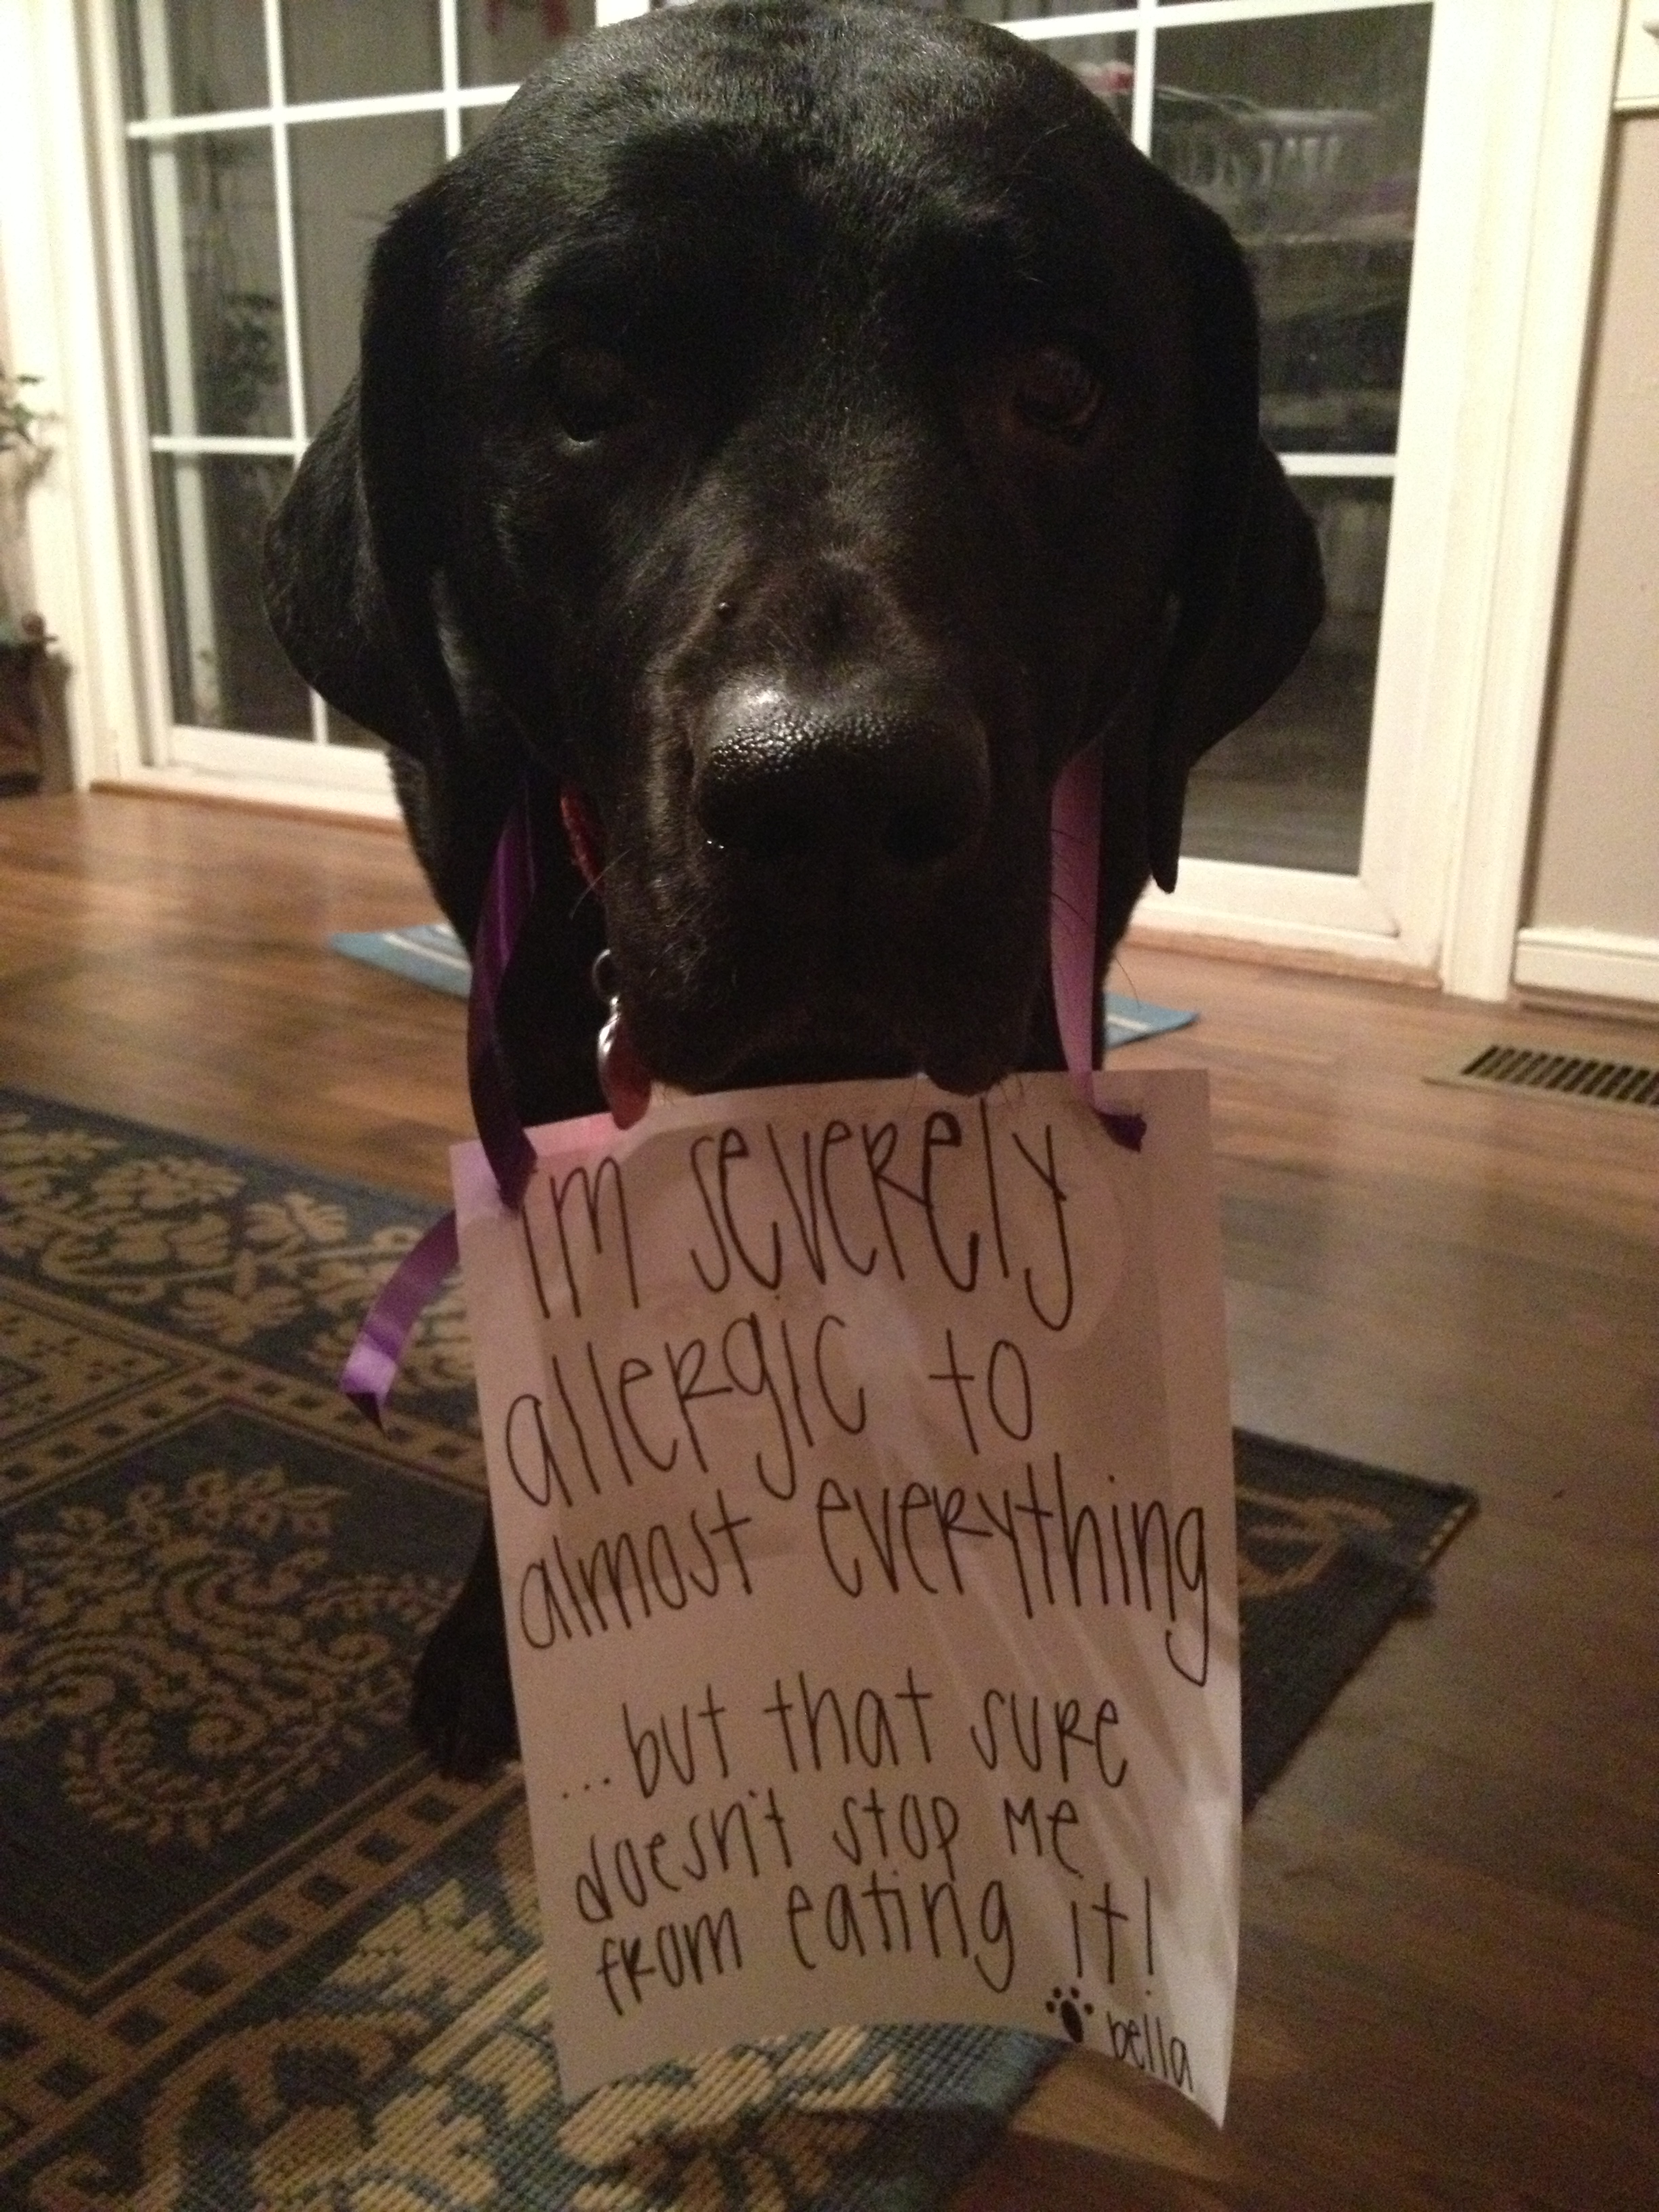 im severely
allergic to
almost everything
...but that sure
doesn't stop me
from eating it!
bella